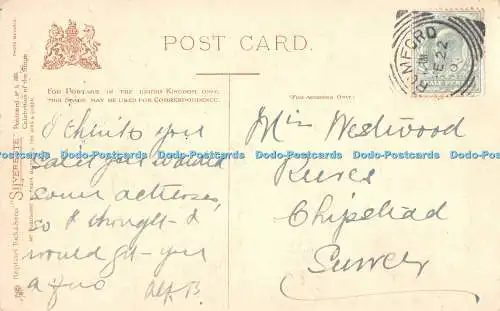 POST CARD.
FOR POSTAGE IN THE UNITED KINGDOM ONLY,
THIS SPACE MAY BE USED FOR CORRESPONDENCE.
(THE ADDRESS ONLY)
ROMFORD
22
"SILVERETTE"
Celebrities of the Stage
I think you
said you would
some actresses,
so I thought I
would get you
a few
Alf B.
Miss Westwood
Chipstead
Surrey
Dodo-Postcards Dodo-Postcards Dodo-Postcards Dodo-Postcards Dodo-Postcards